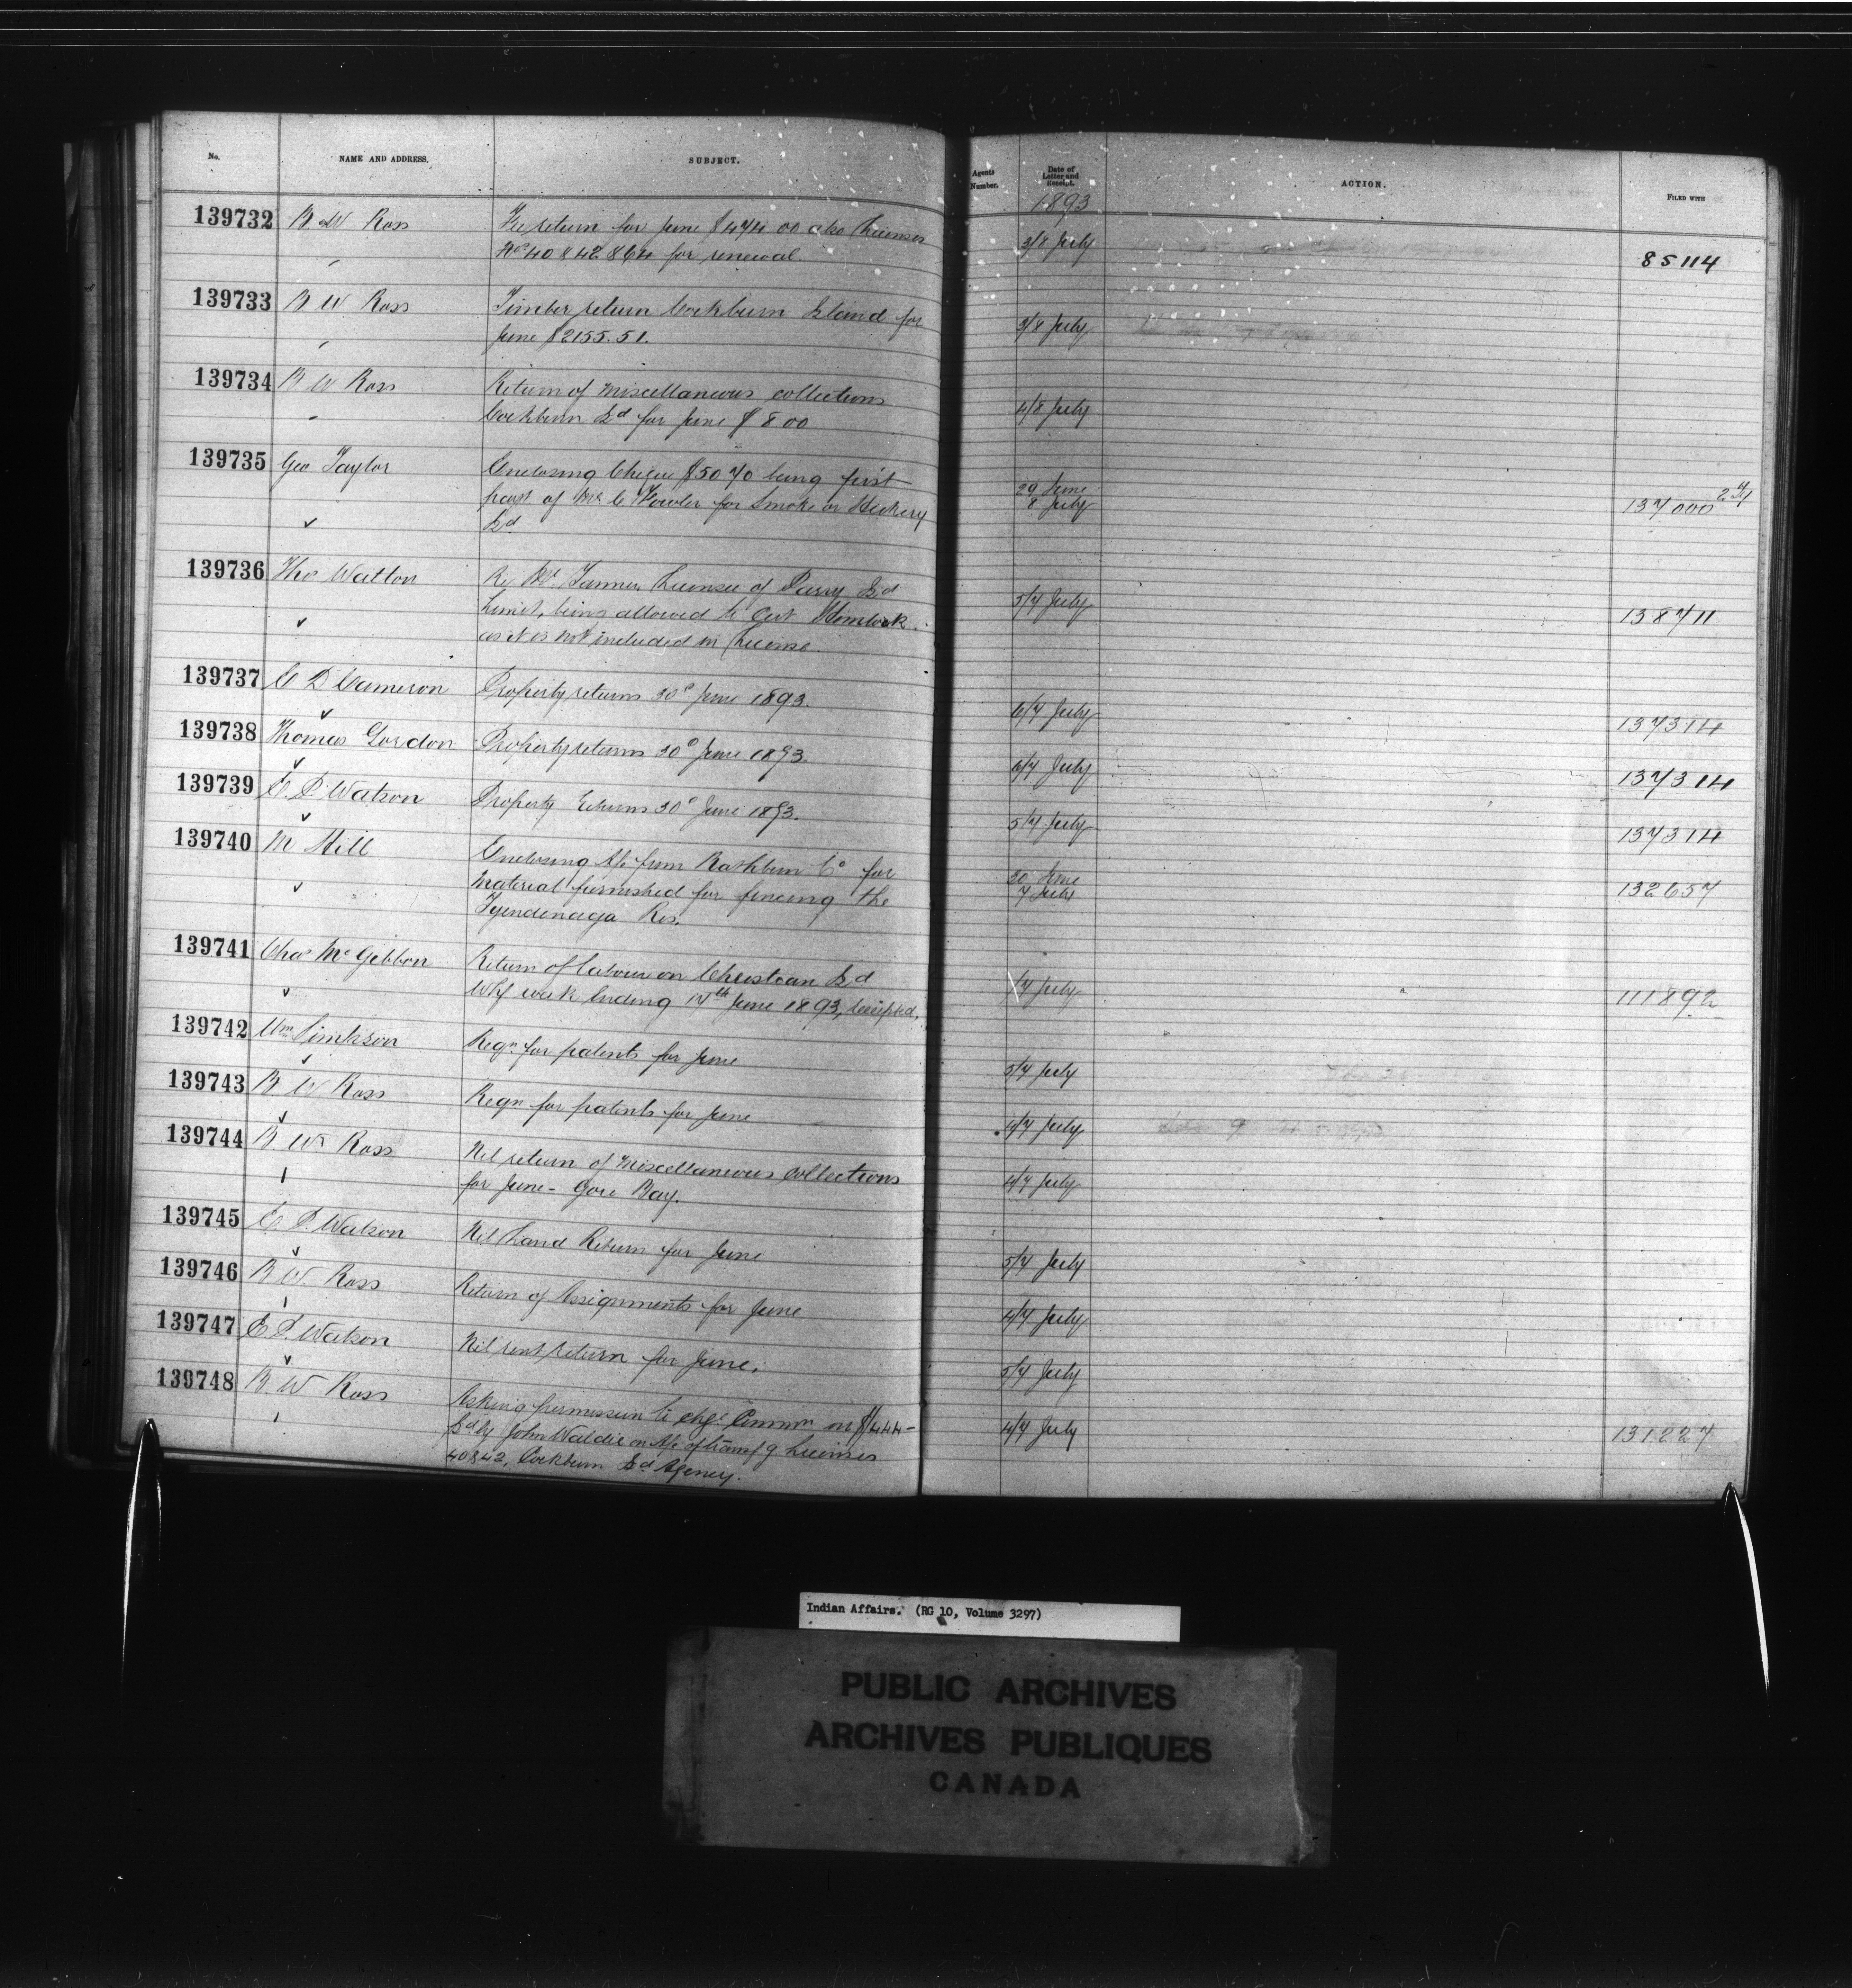 No. NAME AND ADDRESS. SUBJECT. Agents Number. Date of Letter and Receipt. ACTION. FILED WITH
1893
139732 B W Ross Fee return for June $474.00 also Licenses 3/8 July
Nos 40 & 42 & 64 for renewal. 85114
139733 B W Ross Timber return Cockburn Island for 3/8 July
June $2155.51.
139734 B W Ross Return of Miscellaneous collections 4/8 July
Cockburn Isd for June $8.00
139735 Geo Taylor Enclosing Cheque $50 70 being first 29 June
part of Mr C Fowler for Smoke or Hickery 8 July 137000
Isd
139736 Thos Walton Re Mr Tanner, Licensee of Parry Isd 5/7 July
Limit, being allowed to Cut Hemlock 138711
as it is not included in License.
139737 C D Cameron Property returns 30th June 1893. 6/7 July 137314
139738 Thomas Gordon Property returns 30th June 1893. 6/7 July 137314
139739 E. P. Watson Property Returns 30th June 1893. 5/7 July 137314
139740 M Hill Enclosing A/c from Rathbun Co for 30 June
Material furnished for fencing the 7 July 132657
Tyendinaga Res.
139741 Chas McGibbon Return of labour on Christian Isd
Whf week Ending 17th June 1893, receipted. /7 July 111892
139742 Wm Simkson Reqn for patents for June 5/7 July
139743 B W Ross Reqn for patents for June 4/7 July
139744 B. W. Ross Nil return of Miscellaneous Collections
for June - Gore Bay. 4/7 July
139745 E P. Watson Nil Land Return for June 5/7 July
139746 B W Ross Return of Assignments for June 4/7 July
139747 E P. Watson Nil rent return for June. 5/7 July
139748 B. W Ross Asking permission to chge Commn on $1444 - 4/7 July 131227
pd by John Waldie on A/c of transf g Licenses
40 & 42, Cockburn Isd Agency.
Indian Affairs. (RG 10, Volume 3297)
PUBLIC ARCHIVES
ARCHIVES PUBLIQUES
CANADA